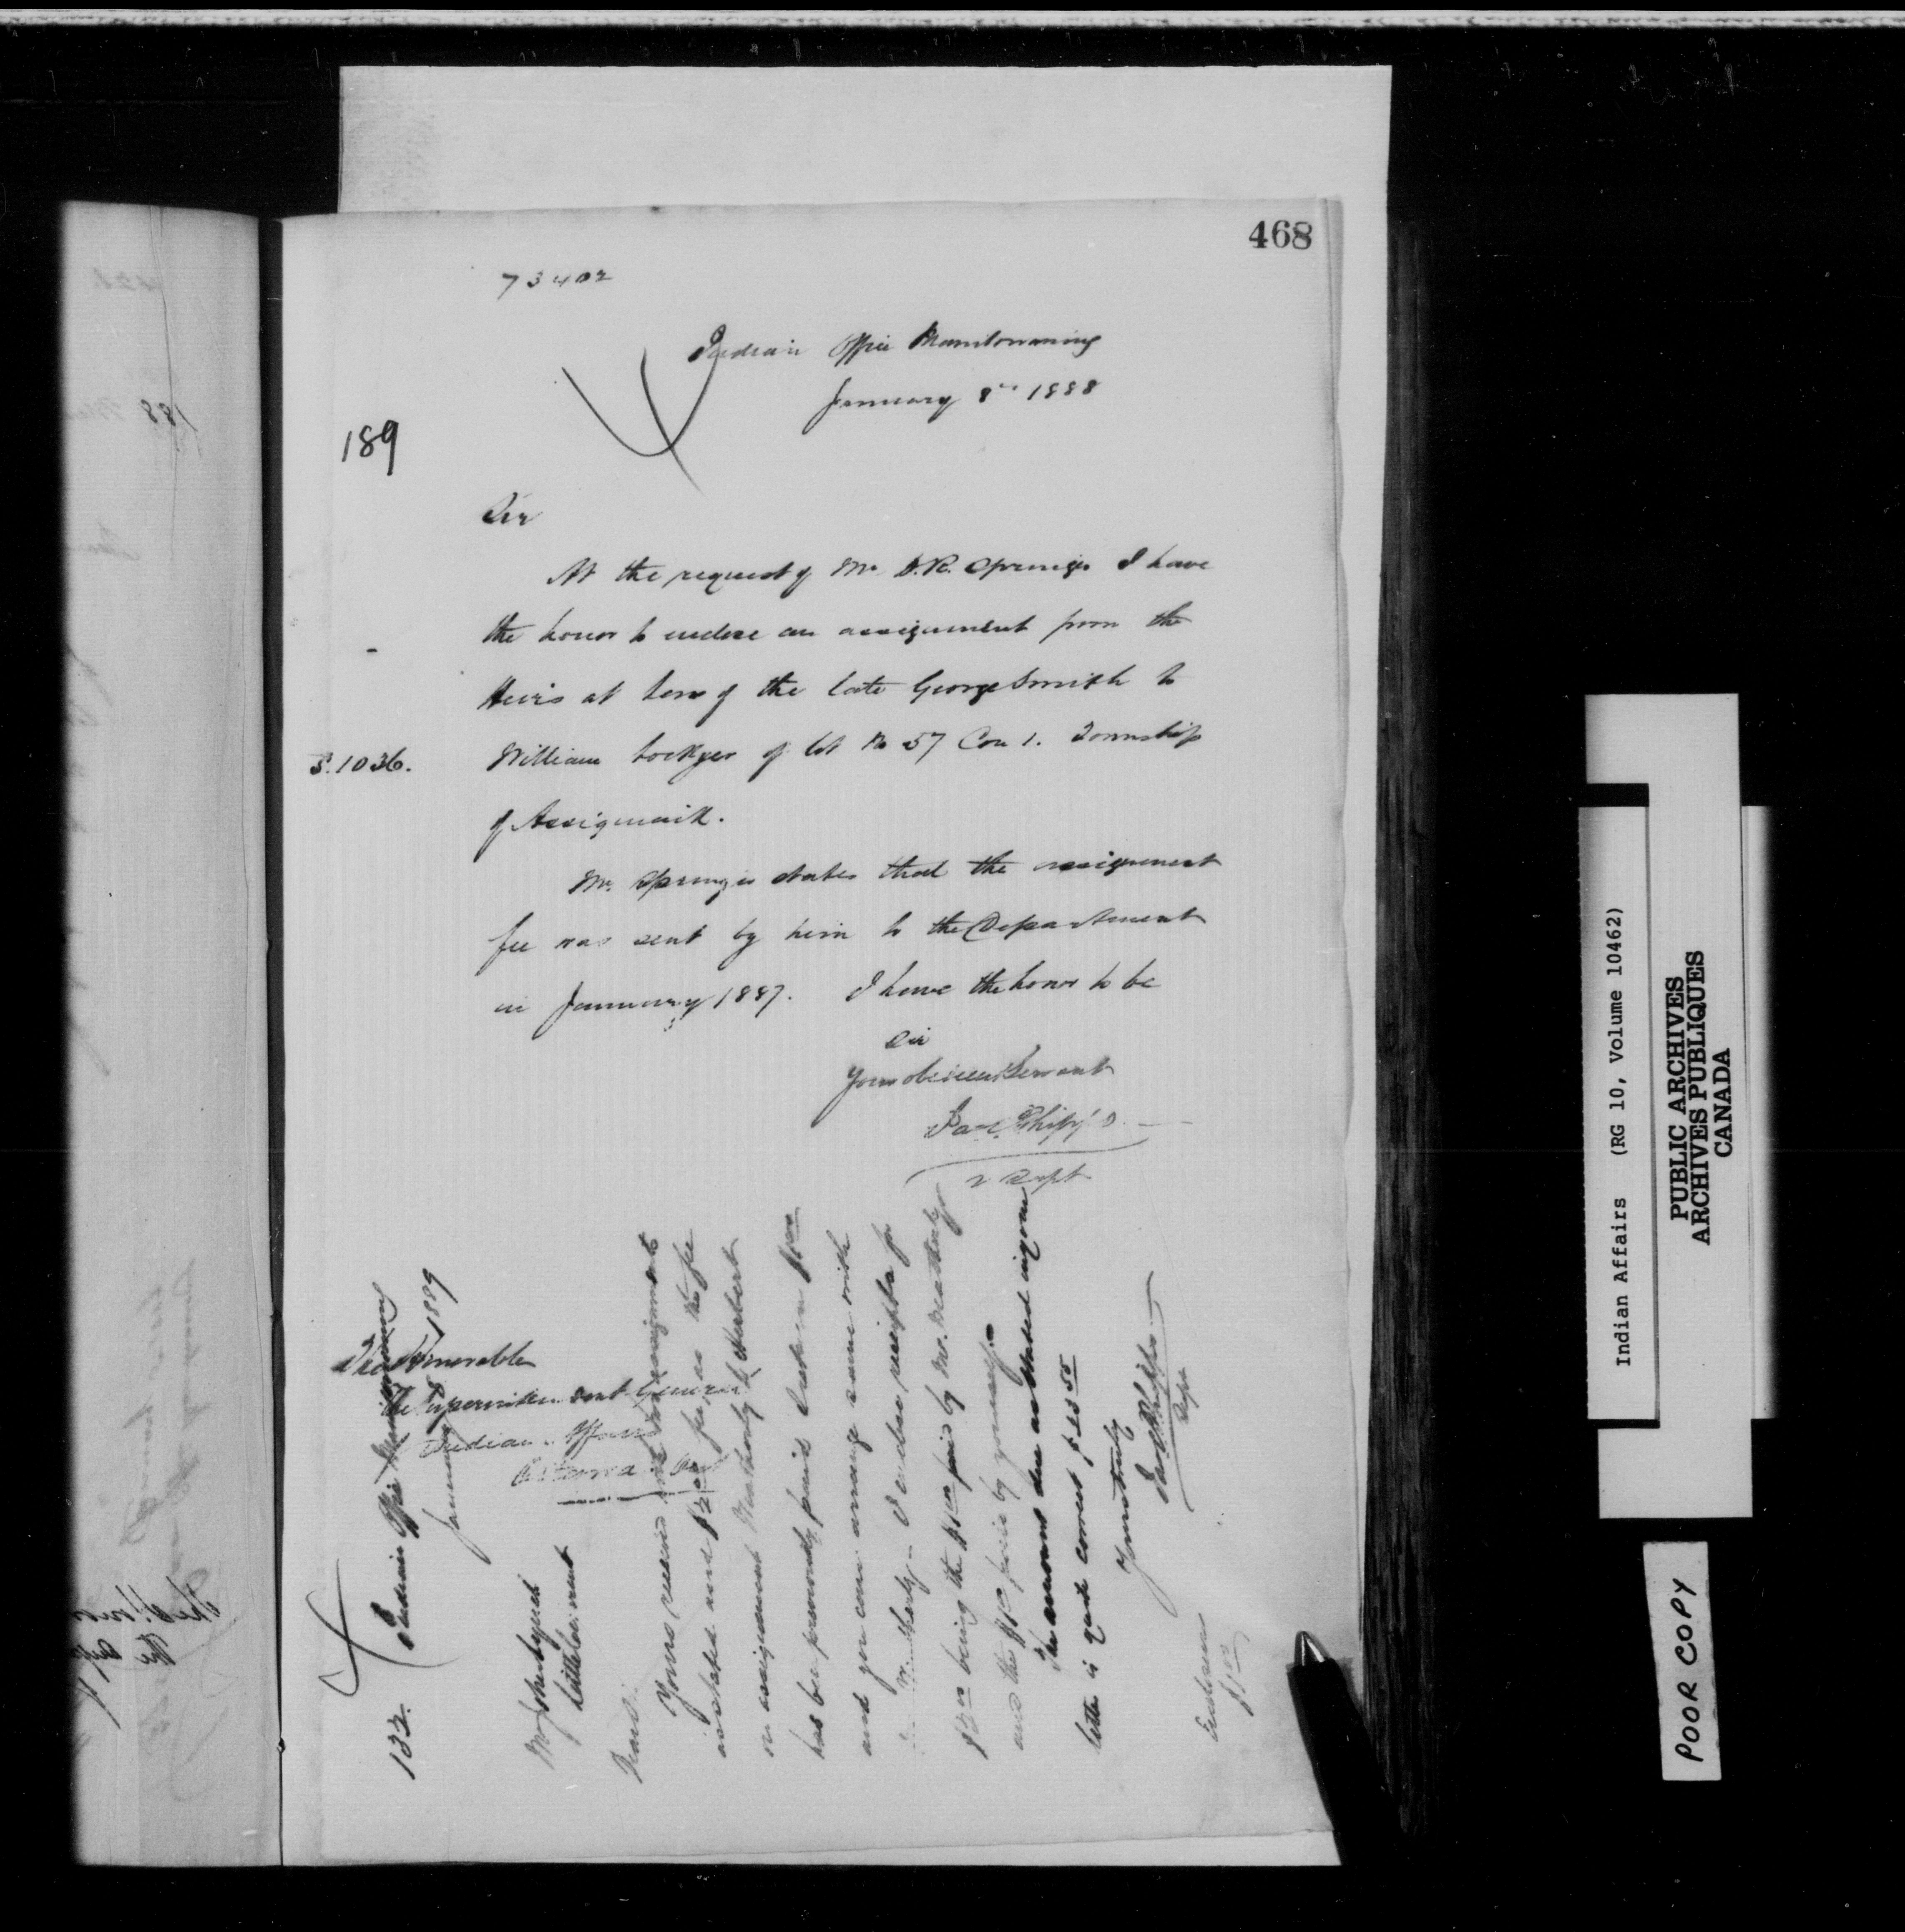 468
73402
Indian Office Manitowaning
January 8th 1888
189
Sir
At the request of Mr D.R. Springer I have
the honor to enclose an assignment from the
Heirs at Law of the late George Smith to
S. 1036.
William Lockyer of lot No 57 Con 1. Township
of Assiginack.
Mr Springer states that the assignment
fee was sent by him to the Department
in January 1887. I have the honor to be
Sir
Your obedient Servant
Jas C Phipps
V Supt
The Honorable
The Superintendent General
Indian Affairs
Ottawa Ont
132.
Indian Office Manitowaning
January 1889
Little Current
Dear Sir
Yours received with assignments
as stated and $2.00 fee, as the fee
on assignment Heatherly to Herbert
has been previously paid I return $1.00
and you can arrange same with
Mr. Heatherly - I enclose receipts for
$2.00 being the $1.00 paid by Mr. Heatherly
and the $1.00 paid by yourself.
The amount due as stated in your
letter is quite correct $23.50
Yours truly
Jas C Phipps
Supt
Enclosure
$1.00
Indian Affairs (RG 10, Volume 10462)
PUBLIC ARCHIVES
ARCHIVES PUBLIQUES
CANADA
POOR COPY